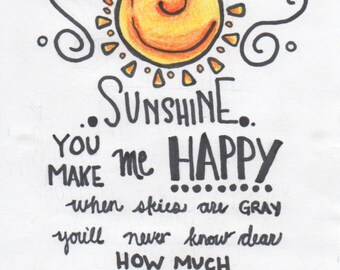 ..SUNSHINE..
YOU MAKE me HAPPY
when skies are GRAY
you'll never know dear
HOW MUCH